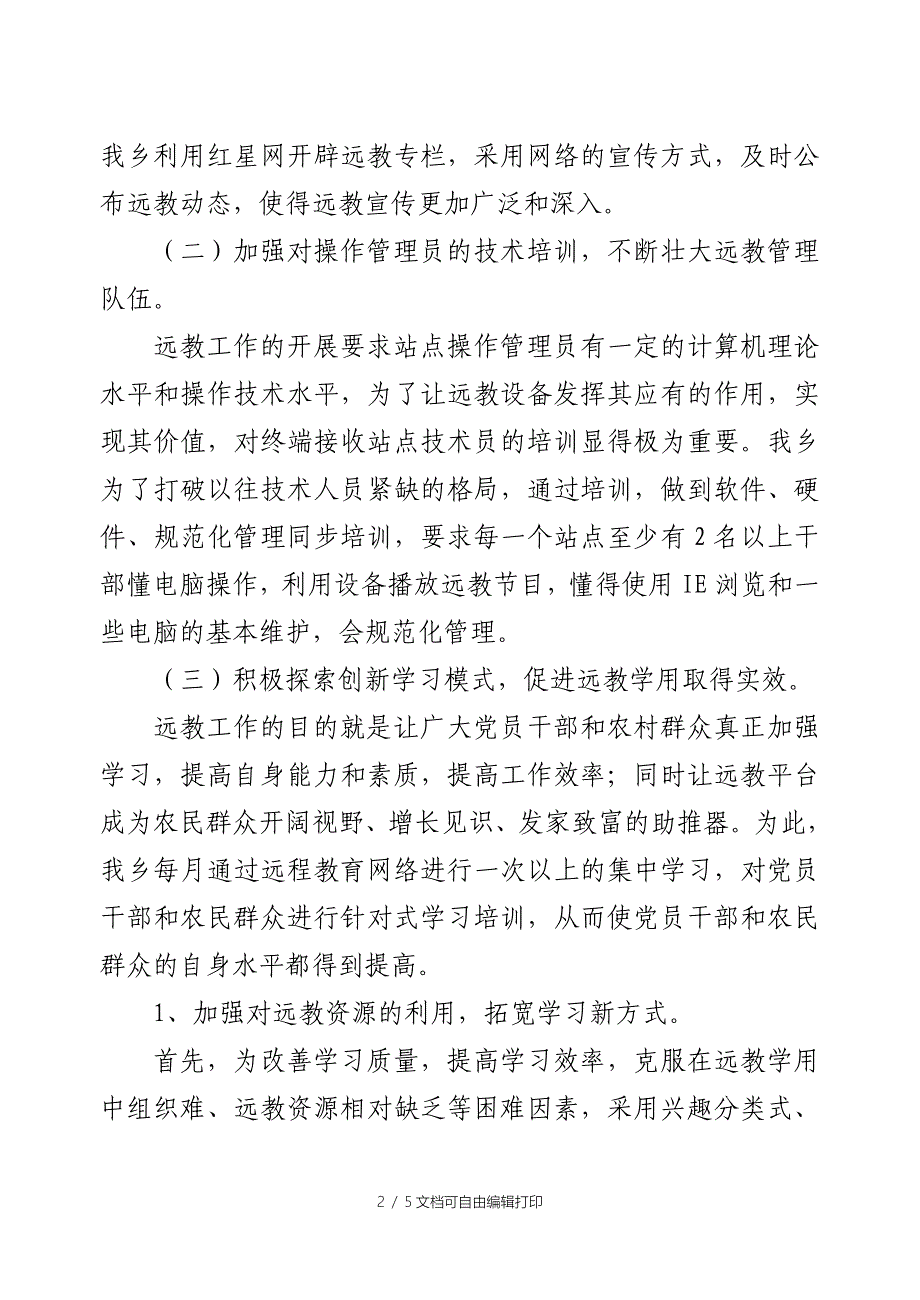 我乡利用红星网开辟远教专栏，采用网络的宣传方式，及时公
布远教动态，使得远教宣传更加广泛和深入。
（二）加强对操作管理员的技术培训，不断壮大远教管理
队伍。
远教工作的开展要求站点操作管理员有一定的计算机理论
水平和操作技术水平，为了让远教设备发挥其应有的作用，实
现其价值，对终端接收站点技术员的培训显得极为重要。我乡
为了打破以往技术人员紧缺的格局，通过培训，做到软件、硬
件、规范化管理同步培训，要求每一个站点至少有 2 名以上干
部懂电脑操作，利用设备播放远教节目，懂得使用 IE 浏览和一
些电脑的基本维护，会规范化管理。
（三）积极探索创新学习模式，促进远教学用取得实效。
远教工作的目的就是让广大党员干部和农村群众真正加强
学习，提高自身能力和素质，提高工作效率；同时让远教平台
成为农民群众开阔视野、增长见识、发家致富的助推器。为此，
我乡每月通过远程教育网络进行一次以上的集中学习，对党员
干部和农民群众进行针对式学习培训，从而使党员干部和农民
群众的自身水平都得到提高。
1、加强对远教资源的利用，拓宽学习新方式。
首先，为改善学习质量，提高学习效率，克服在远教学用
中组织难、远教资源相对缺乏等困难因素，采用兴趣分类式、
2 / 5 文档可自由编辑打印